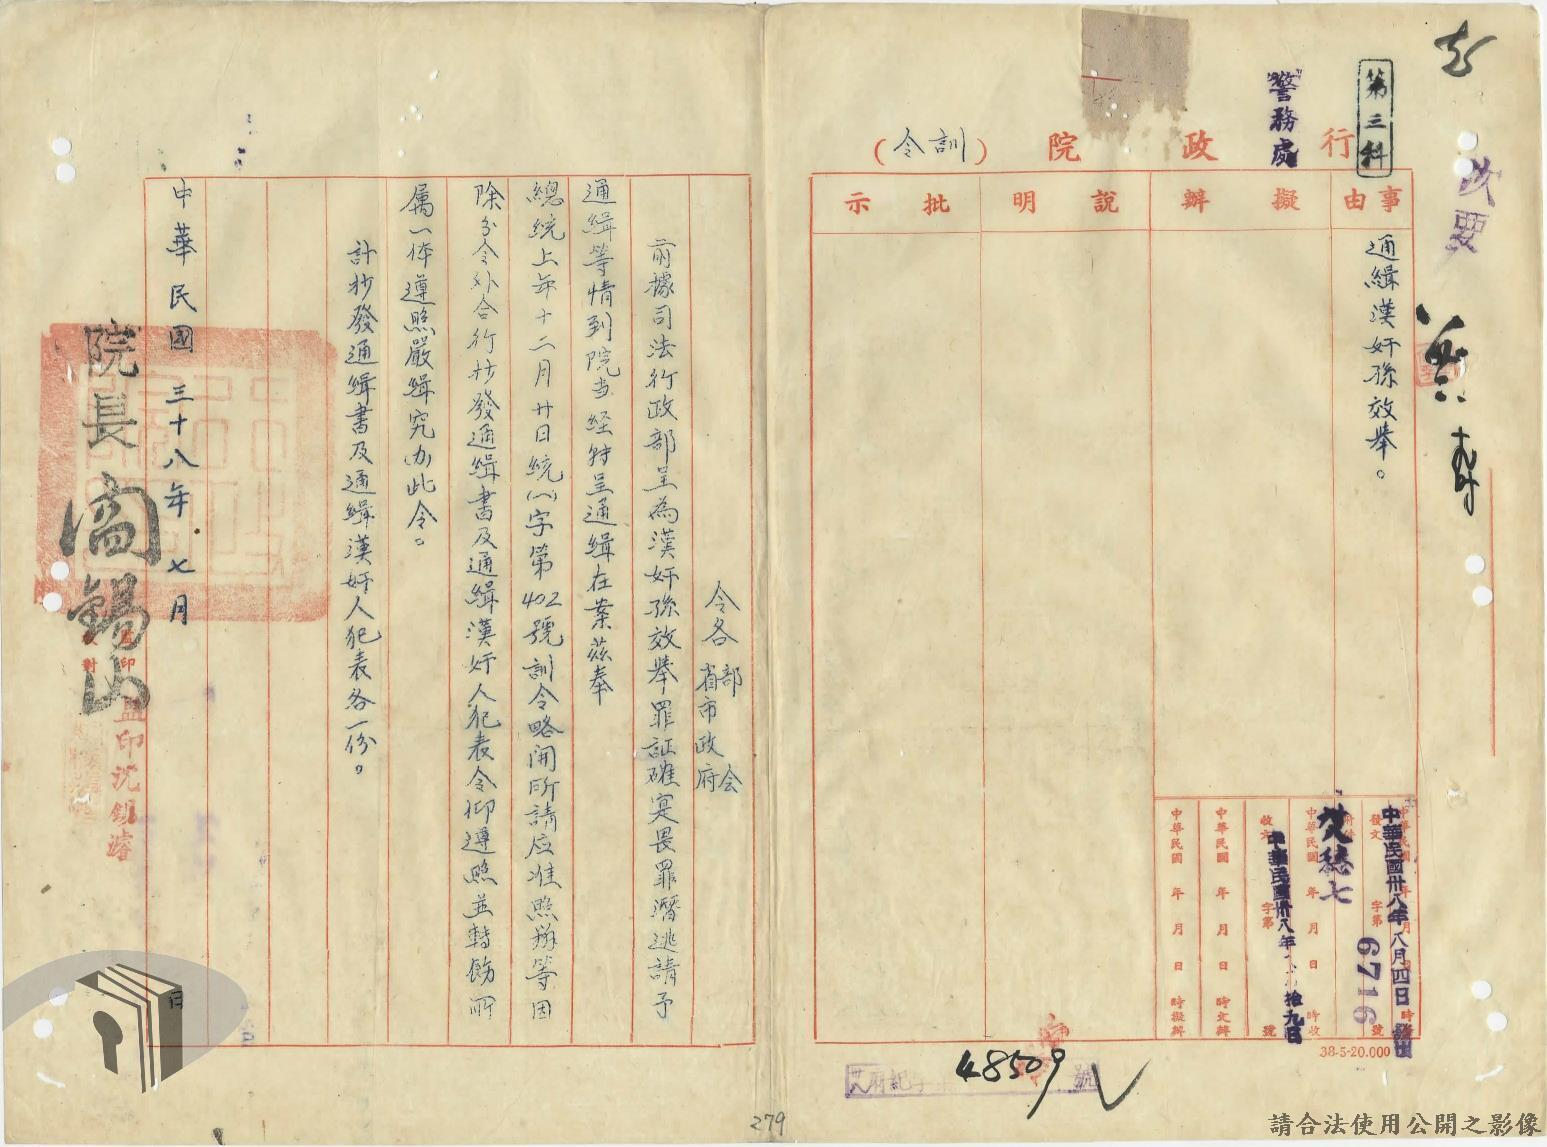 第三科
警務處
行政院（訓令）
事由
擬辦
說明
批示
通緝漢奸孫效舉。
中華民國卅八年八月四日
發文
字第6716號
收文
字第
號
中華民國 年 月 日 時擬辦
中華民國 年 月 日 時文辦
38-5-20.000
48509
號
令各部会省市政府
前據司法行政部呈為漢奸孫效舉罪証確实畏罪潛逃請予
通緝等情到院当経转呈通緝在案茲奉
總統上年十二月廿日統(一)字第402號訓令略開所請应准照辦等因
除分令外合行抄發通緝書及通緝漢奸人犯表令仰遵照並轉飭所
属一体遵照嚴緝究办此令。
計抄發通緝書及通緝漢奸人犯表各一份。
中華民國三十八年七月 日
院長閻錫山
監印沈錫濬
校對
279
請合法使用公開之影像